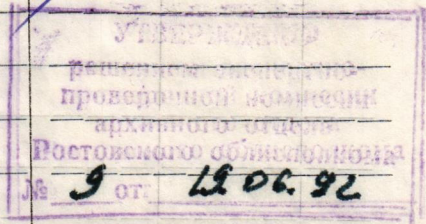 УТВЕРЖДЕНО
решением экспертно-
проверочной комиссии
архивного отдела
Ростовского облисполкома
№ 9 от 19.06.92